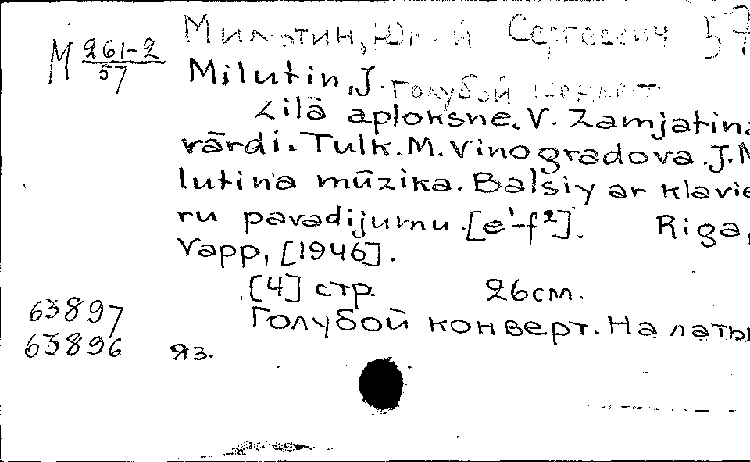 Милютин, Юрий Сергеевич 57
М 261-2
57
Milutin, J. Голубой конверт
Zilā aploksne. V. Zamjatina
vārdi. Tulk. M. Vinogradova. J. M
lutina mūzika. Balsiy ar klavie
ru pavadijumu. [e¹-f²]. Riga,
Vapp, [1946].
[4] стр. 26 см.
63897 Голубой конверт. На латы
63896 яз.